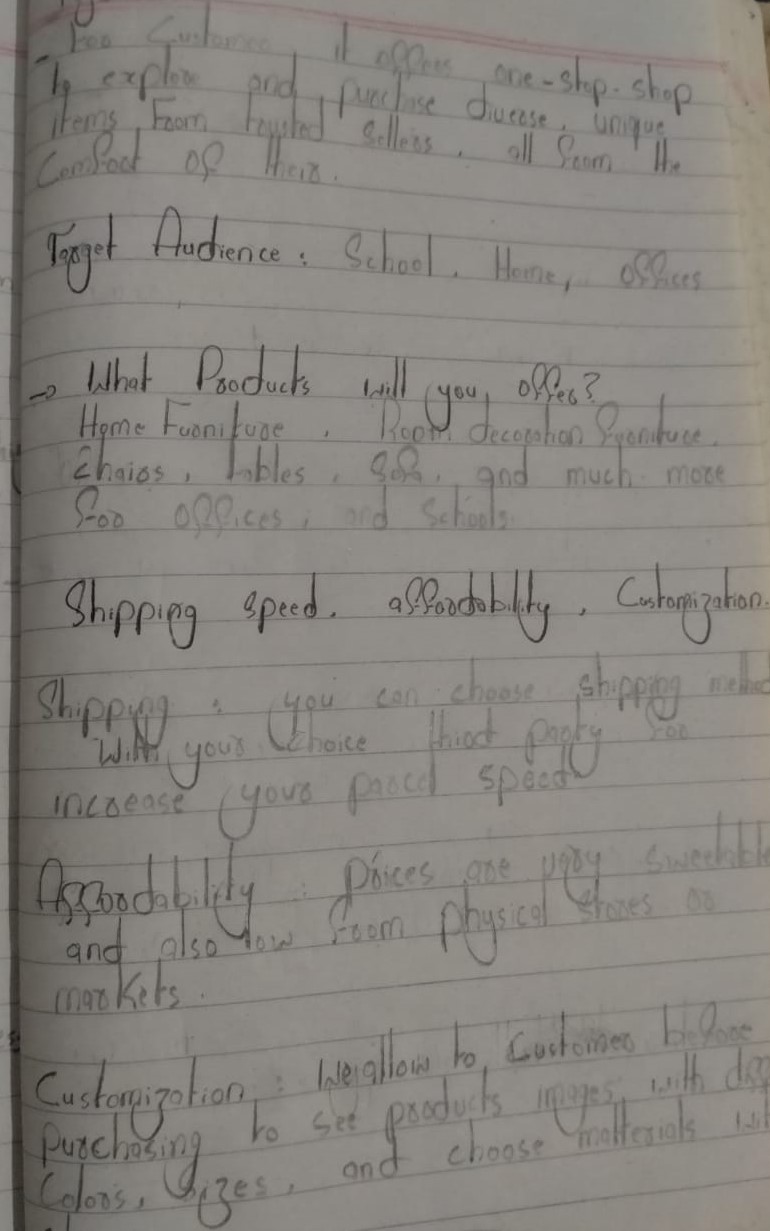 - For Customer, it offers one-stop-shop
to explore and purchase diverse, unique
items from trusted sellers, all from the
Comfort of their.
Target Audience : School, Home, offices
→ What Products will you offer?
Home Furniture, Room decoration Furniture,
Chairs, tables, Sofa, and much more
for offices, and Schools.
Shipping speed, affordability, Customization.
Shipping : you can choose shipping
with your choice third party for
increase your parcel speed
Affordability : Prices are very
and also low from physical stores or
markets.
Customization : We allow to Customer before
purchasing to see products images, with
Colors, Sizes, and choose matterials